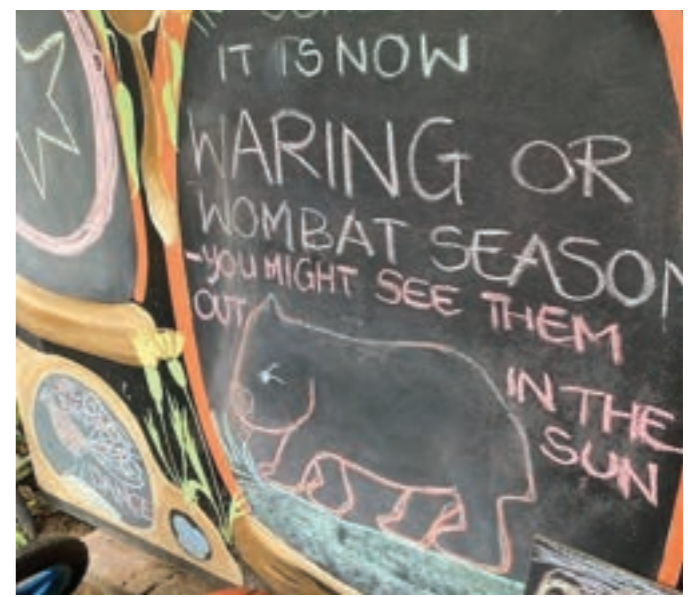 IT IS NOW
WARING OR
WOMBAT SEASON
-YOU MIGHT SEE THEM
OUT
IN THE
SUN